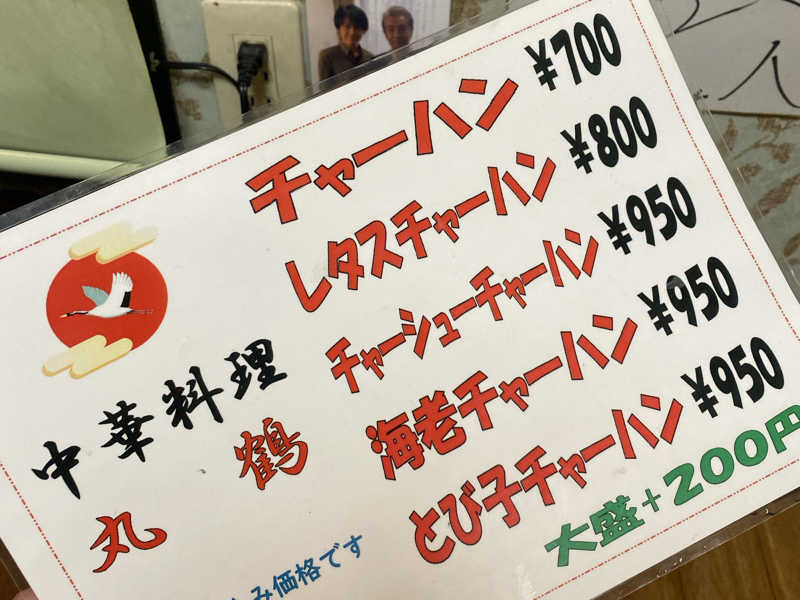 チャーハン ¥700
レタスチャーハン ¥800
チャーシューチャーハン ¥950
海老チャーハン ¥950
とび子チャーハン ¥950
大盛+200円
中華料理
丸鶴
み価格です